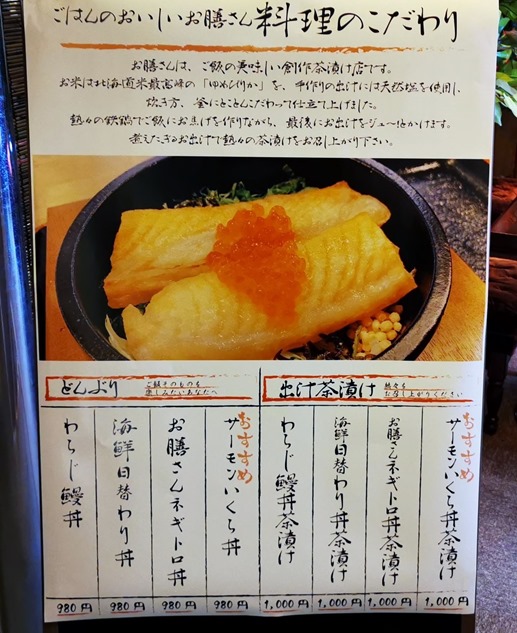 ごはんのおいしいお膳さん料理のこだわり
お膳さんは、ご飯の美味しい創作茶漬け店です。
お米は北海道米最高峰の「ゆめぴりか」を、手作りの出汁には天然塩を使用し、
炊き方、釜にとことんこだわって仕立て上げました。
熱々の鉄鍋でご飯にお焦げを作りながら、最後にお出汁をジュ〜とかけます。
煮えたぎるお出汁で熱々の茶漬けをお召し上がり下さい。
どんぶり
ご飯そのものを
楽しみたいあなたへ
おすすめ
サーモンいくら丼
980円
お膳さんネギトロ丼
980円
海鮮日替わり丼
980円
わらじ鰻丼
980円
出汁茶漬け
熱々を
お召し上がりください
おすすめ
サーモンいくら丼茶漬け
1,000円
お膳さんネギトロ丼茶漬け
1,000円
海鮮日替わり丼茶漬け
1,000円
わらじ鰻丼茶漬け
1,000円